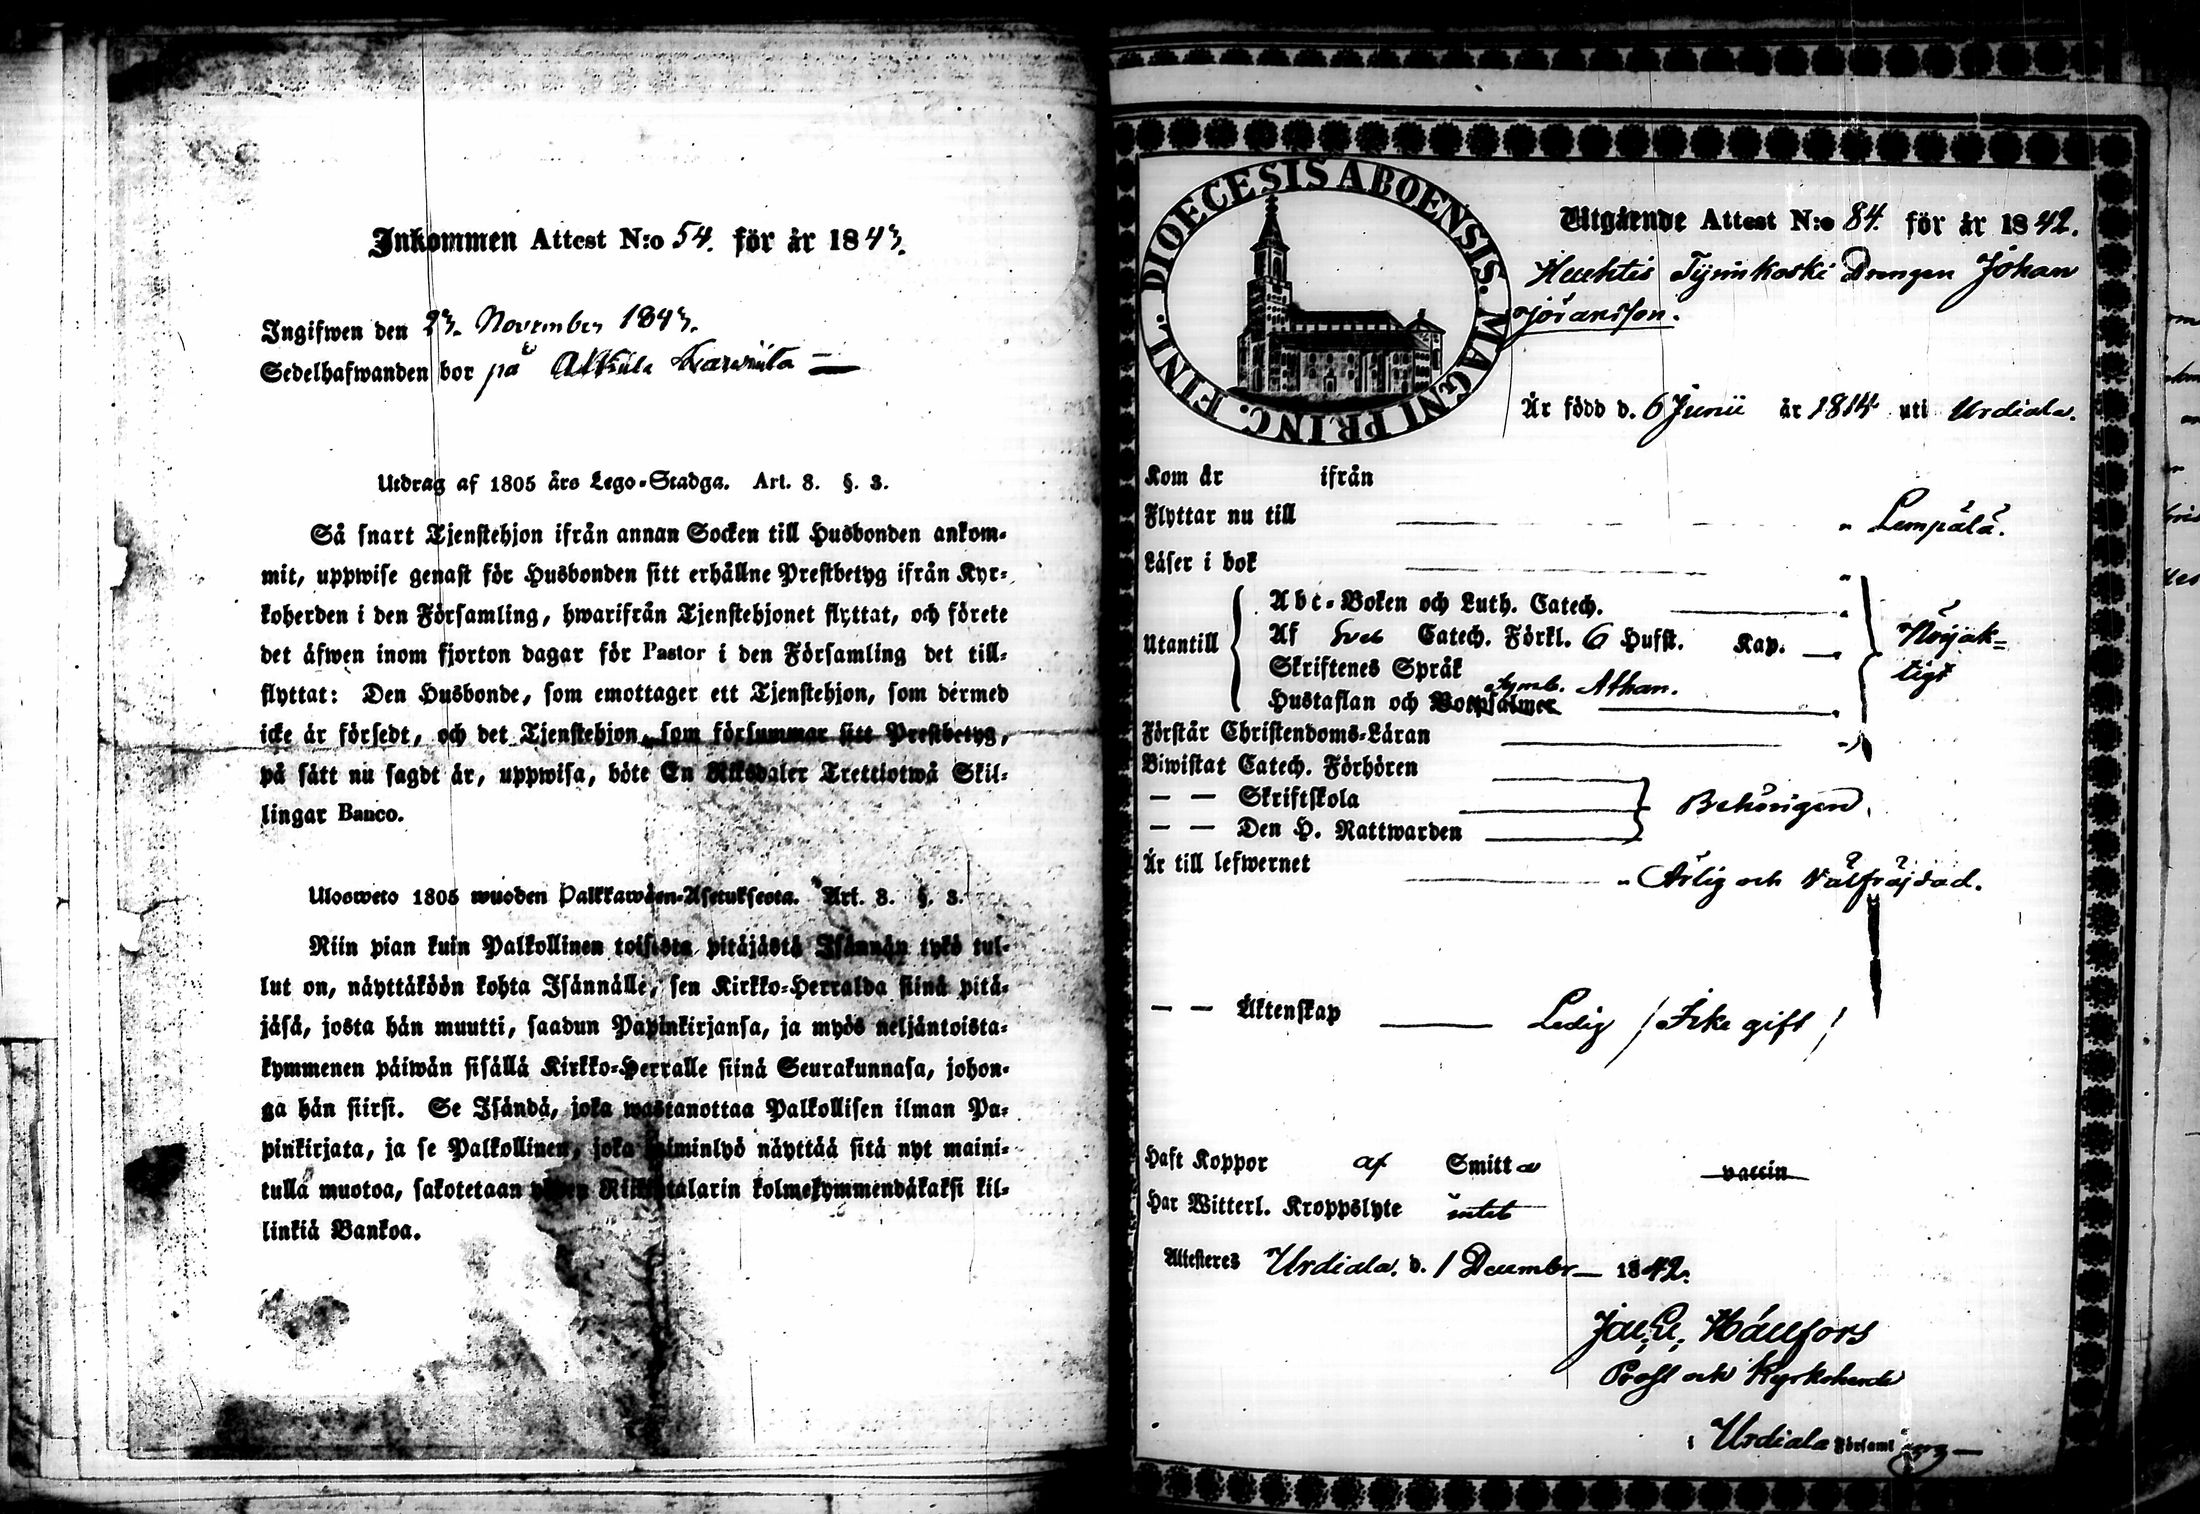 Inkommen Attest N:o 54. för år 1843.
Ingifwen den 23. November 1843.
Sedelhafwanden bor på Alkula
Utdrag af 1805 års Lego-Stadga. Art. 8. §. 3.
Så snart Tjenstehjon ifrån annan Socken till Husbonden ankom-
mit, uppwise genast för Husbonden sitt erhållne Prestbetyg ifrån Kyr-
koherden i den Församling, hwarifrån Tjenstehjonet flyttat, och förete
det äfwen inom fjorton dagar för Pastor i den Församling det till-
flyttat: Den Husbonde, som emottager ett Tjenstehjon, som dermed
icke är försedt, och det Tjenstehjon, som försummar sitt Prestbetyg,
på sätt nu sagdt är, uppwisa, böte En Riksdaler Trettiotwå Skil-
lingar Banco.
Ulosweto 1805 wuoden Palkkawäen-Asetuksesta. Art. 8. §. 3.
Niin pian kuin Palkollinen toisesta pitäjästä Isännän tykö tul-
lut on, näyttäköön kohta Isännälle, sen Kirkko-Herralda siinä pitä-
jäsä, josta hän muutti, saadun Papinkirjansa, ja myös neljäntoista-
kymmenen päiwän sisällä Kirkko-Herralle siinä Seurakunnasa, johon-
ga hän siirsi. Se Isändä, joka wastanottaa Palkollisen ilman Pa-
pinkirjata, ja se Palkollinen, joka laiminlyö näyttää sitä nyt maini-
tulla muotoa, sakotetaan yhden Riksitalarin kolmekymmendäkaksi kil-
linkiä Bankoa.
DIOECESIS ABOENSIS. MAGNI PRINC. FINL.
Utgående Attest N:o 84. för år 1842.
Huhtis Tynnkoski Drengen Johan
Jöransson.
Är född d. 6 Junii år 1814 uti Urdiala.
Kom år ifrån
Flyttar nu till " Lempälä.
Läser i bok "
Utantill
Abc-Boken och Luth. Catech.
Af Sveb Catech. Förkl. 6 Hufst. Kap.
Skriftenes Språk
Hustaflan och Botpsalmer Symb. Athan.
Nöjak-
tigt
Förstår Christendoms-Läran
Biwistat Catech. Förhören
— — Skriftskola
— — Den H. Nattwarden
Behörigen.
Är till lefwernet " Ärlig och Välfräjdad.
— — Äktenskap Ledig / Icke gift /
Haft Koppor af Smitta vaccin
Har Witterl. Kroppslyte intet
Attesteres Urdiala. d. 1 Decembr 1842.
Hållfors
Prost och Kyrkoherde
i Urdiala Församling